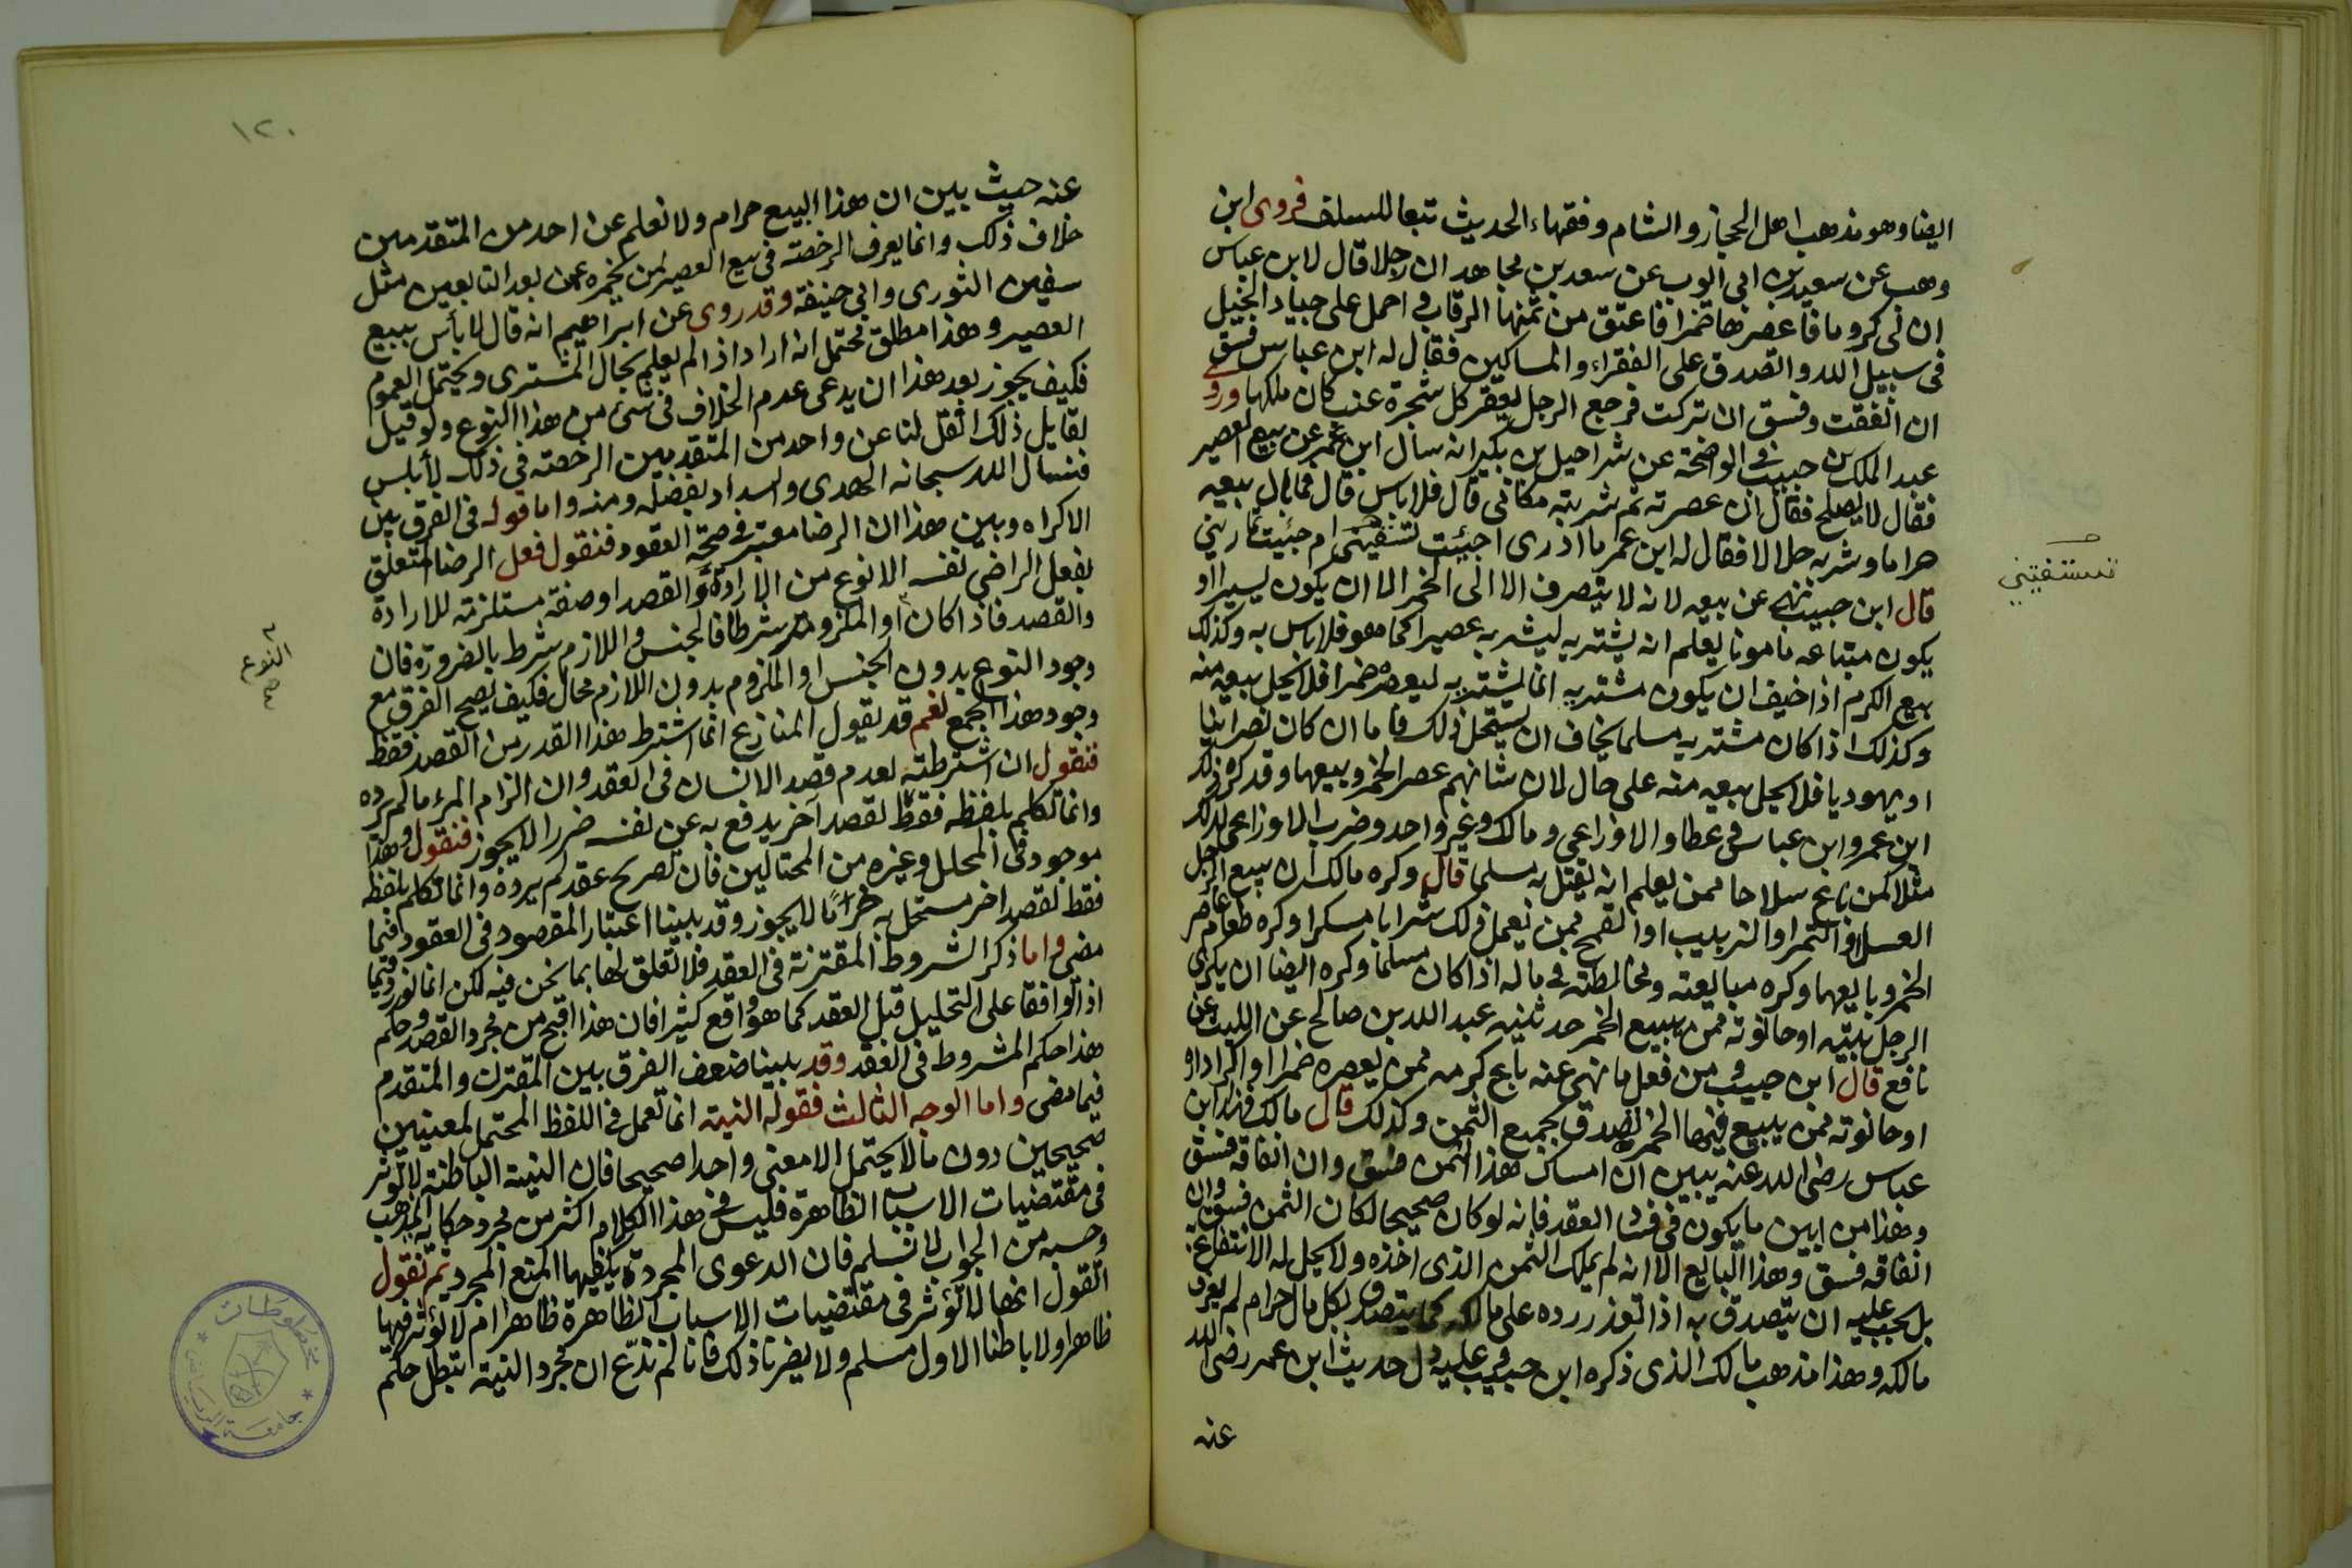 ايضا وهو مذهب اهل الحجاز والشام وفقهاء الحديث تبعا للسلف فروى ابن
وهب عن سعيد بن ابى ايوب عن سعد بن مجاهد ان رجلا قال لابن عباس
ان لى كروما فاعصرها خمرا فاعتق من ثمنها الرقاب واحمل على جياد الخيل
فى سبيل الله واتصدق على الفقراء والمساكين فقال له ابن عباس فسق
ان انفقت وفسق ان تركت فرجع الرجل يعقر كل شجرة عنب كان ملكها وروى
عبد الملك بن حبيب فى الواضحة عن شراحيل بن بكير انه سأل ابن عمر عن بيع العصير
فقال لا يصلح فقال ان عصرته ثم شربته مكانى قال فلا باس قال فما بال بيعه
حراما وشربه حلالا فقال له ابن عمر ما ادرى اجئت تستفتينى ام جئت تمارينى
قال ابن حبيب نهى عن بيعه لانه لا يتصرف الا الى الخمر الا ان يكون يسيرا او
يكون مبتاعه مامونا يعلم انه يشتريه ليشربه عصيرا كما هو فلا باس به وكذلك
بيع الكرم اذا خيف ان يكون مشتريه انما يشتريه ليعصره خمرا فلا يحل بيعه منه
وكذلك اذا كان مشتريه مسلما يخاف ان يستحل ذلك فاما ان كان نصرانيا
او يهوديا فلا يحل بيعه منه على حال لان شانهم عصر الخمر وبيعها وقد كره ذلك
ابن عمر وابن عباس وعطا والاوزاعى ومالك وغير واحد وضرب الاوزاعى لذلك
مثلا كمن باع سلاحا ممن يعلم انه يقتل به مسلما قال وكره مالك ان يبيع الرجل
العسل او التمر او الزبيب او القمح ممن يعمل ذلك شرابا مسكرا وكره طعام عاصر
الخمر وبايعها وكره مبايعته ومخالطته فى ماله اذا كان مسلما وكره ايضا ان يكرى
الرجل بيته او حانوته ممن يبيع الخمر حدثنيه عبد الله بن صالح عن الليث عن
نافع قال ابن حبيب ومن فعل ما نهى عنه باع كرمه ممن يعصره خمرا او اكرا داره
او حانوته ممن يبيع فيها الخمر تصدق بجميع الثمن وكذلك قال مالك فهذا ابن
عباس رضى الله عنه يبين ان امساك هذا الثمن فسق وان انفاقه فسق
وهذا من ابين ما يكون فى فساد العقد فانه لو كان صحيحا لكان الثمن فسق وان
انفاقه فسق وهذا البايع الا انه لم يملك الثمن الذى اخذه ولا يحل له الانتفاع به
بل يجب عليه ان يتصدق به اذا تعذر رده على مالكه كما يتصدق بكل مال حرام لم يعرف
مالكه وهذا مذهب مالك الذى ذكره ابن حبيب وعليه دل حديث ابن عمر رضى الله
عنه
تستفتيني
١٢٠
عنه حيث بين ان هذا البيع حرام ولا نعلم عن احد من المتقدمين
خلاف ذلك وانما يعرف الرخصة فى بيع العصير لمن يخمره عمن بعد التابعين مثل
سفين الثورى وابى حنيفة وقد روى عن ابراهيم انه قال لا بأس ببيع
العصير وهذا مطلق يحتمل انه اراد اذا لم يعلم بحال المشترى ويحتمل العموم
فكيف يجوز بعد هذا ان يدعى عدم الخلاف فى شئ من هذا النوع ولو قيل
لقايل ذلك انقل لنا عن واحد من المتقدمين الرخصة فى ذلك لأبلس
فنسأل الله سبحانه الهدى والسداد بفضله ومنه واما قوله فى الفرق بين
الاكراه وبين هذا ان الرضا معتبر فى صحة العقود فنقول فعل الرضا المتعلق
بفعل الراضى نفسه الا نوع من الارادة والقصد او صفة مستلزمة للارادة
والقصد فاذا كان او الملزوم شرطا فالجنس واللازم شرط بالضرورة فان
وجود النوع بدون الجنس او الملزوم بدون اللازم محال فكيف يصح الفرق مع
وجود هذا الجمع نعم قد يقول المنازع انما اشترط هذا القدر من القصد فقط
فنقول ان اشترطته لعدم قصد الانسان فى العقد وان الزام المرء ما لم يرده
وانما تكلم بلفظه فقط لقصد آخر يدفع به عن نفسه ضررا لا يجوز فنقول وهذا
موجود فى المحلل وغيره من المحتالين فان تصريح عقد لم يرده وانما تكلم بلفظه
فقط لقصد اخر مستحل به حراما لا يجوز وقد بينا اعتبار المقصود فى العقود فيما
مضى واما ذكر الشروط المقترنة فى العقد فلا تعلق لها بما نحن فيه لكن انما تورد فيما
اذا توافقا على التحليل قبل العقد كما هو واقع كثيرا فان هذا اقبح من مجرد القصد وحكم
هذا حكم المشروط فى العقد وقد بينا ضعف الفرق بين المقترن والمتقدم
فيما مضى واما الوجه الثالث فقوله النية انما تعمل فى اللفظ المحتمل لمعنيين
صحيحين دون ما لا يحتمل الا معنى واحدا صحيحا فان النية الباطنة لا تؤثر
فى مقتضيات الاسباب الظاهرة فليس فى هذا الكلام اكثر من مجرد حكاية المذهب
وحسبه من الجواب لا نسلم فان الدعوى المجردة يكفيها المنع المجرد ثم نقول
القول انها لا تؤثر فى مقتضيات الاسباب الظاهرة ظاهرا ام لا تؤثر فيها
ظاهرا ولا باطنا الاول مسلم ولا يضرنا ذلك فانا لم ندع ان مجرد النية تبطل حكم
النوع
صح
مخطوطات
جامعة الرياض